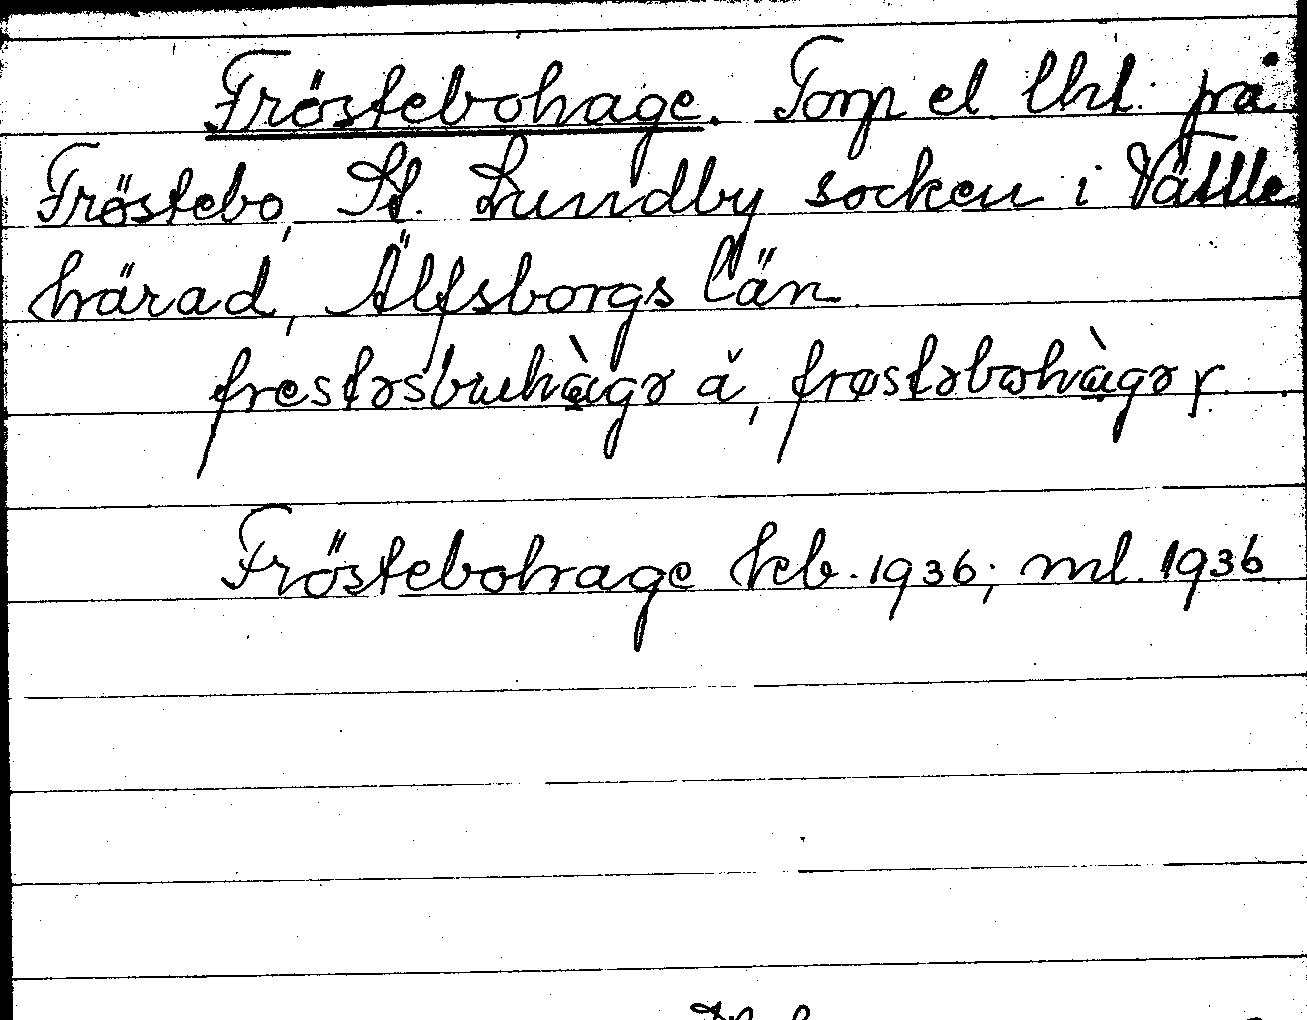 Fröstebohage. Torp el lht. på
Fröstebo, St. Lundby socken i Vättle
härad, Älfsborgs län
frestəsbuhàgə ä, frøstəbohàgə y.
Fröstebohage hcb. 1936; ml. 1936